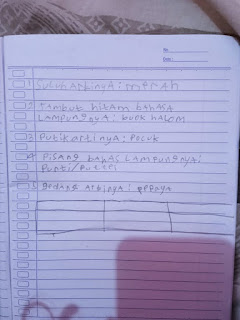 No.
Date.
1 Suluh artinya: merah
2 Rambut hitam bahasa
Lampungnya: buok halom
3 Putik artinya: Pocuk
4 Pisang bahas Lampungnya:
Punti/Putti
5 gedang artinya: